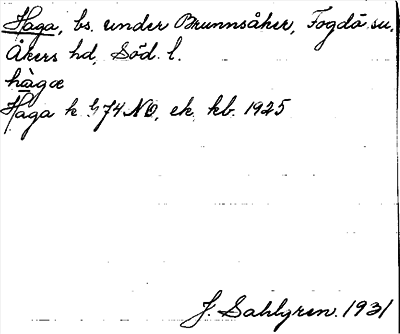 Haga, bs. under Brunnsåker, Fogdö sn,
Åkers hd, Söd. l.
hàgæ
Haga k 74 NO, ek. kb. 1925
J. Sahlgren. 1931